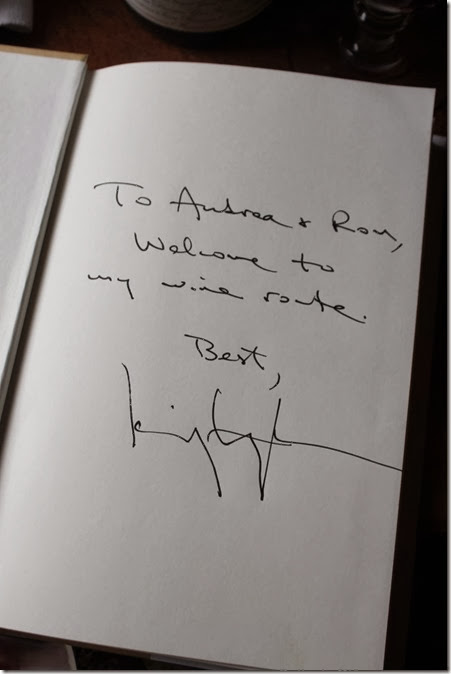 To Andrea & Ron,
Welcome to
my wine route.
Best,